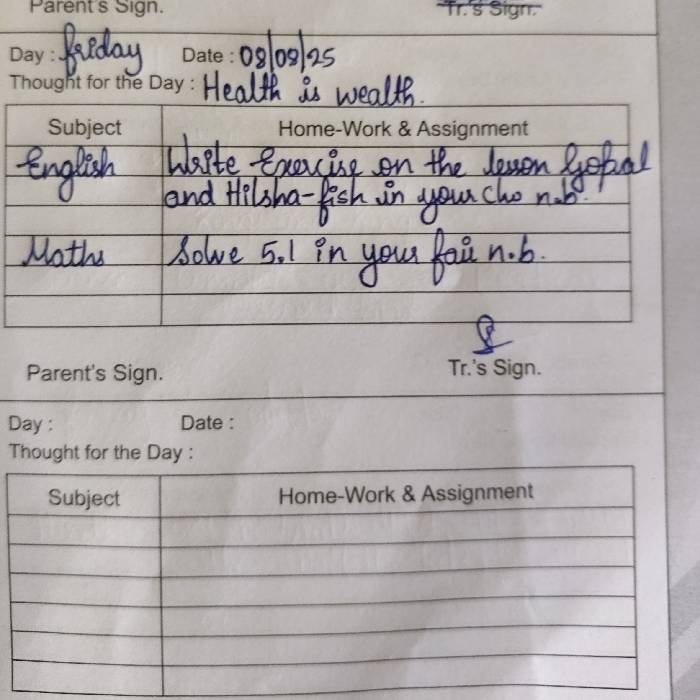 Parent's Sign. Tr.'s Sign.
Day : friday Date : 08/09/25
Thought for the Day : Health is wealth.
Subject Home-Work & Assignment
English Write Exercise on the lesson Gopal
and Hilsha-fish in your Cho n.b.
Maths Solve 5.1 in your fair n.b.
Parent's Sign. Tr.'s Sign.
Day : Date :
Thought for the Day :
Subject Home-Work & Assignment